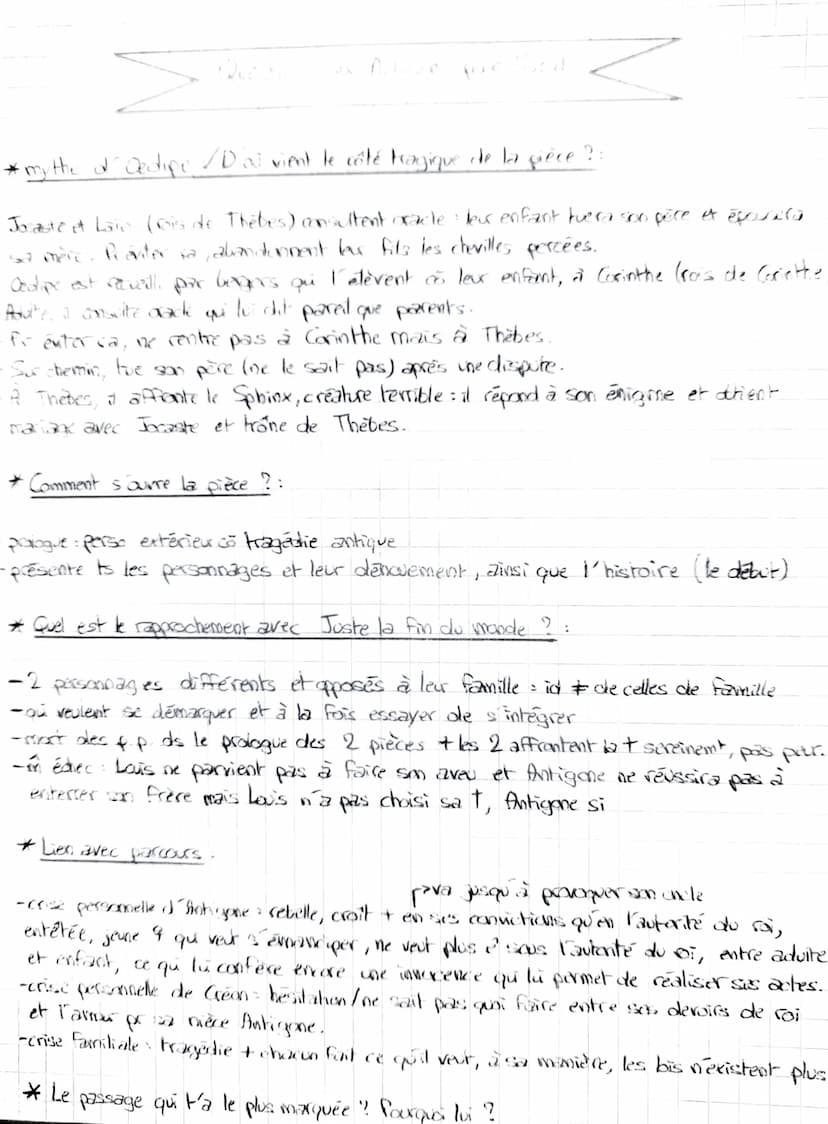 * mythe d'Oedipe / D'où vient le côté tragique de la pièce ? :
Jocaste et Laïos (rois de Thèbes) consultent oracle : leur enfant tuera son père et épousera
sa mère. Pr éviter ça, abandonnent leur fils les chevilles percées.
Oedipe est recueilli par bergers qui l'élèvent cô leur enfant, à Corinthe (rois de Corinthe
Adulte, il consulte oracle qui lui dit pareil que parents.
Pr éviter ça, ne rentre pas à Corinthe mais à Thèbes.
Sur chemin, tue son père (ne le sait pas) après une dispute.
À Thèbes, il affronte le Sphinx, créature terrible : il répond à son énigme et obtient
mariage avec Jocaste et trône de Thèbes.
* Comment s'ouvre la pièce ? :
prologue : perso extérieur cô tragédie antique
- présente ts les personnages et leur dénouement, ainsi que l'histoire (le début)
* Quel est le rapprochement avec Juste la fin du monde ? :
- 2 personnages différents et opposés à leur famille : id ≠ de celles de famille
- qui veulent se démarquer et à la fois essayer de s'intégrer
- mort des p.p. ds le prologue des 2 pièces + les 2 affrontent la † sereinemt, pas peur.
- m̂ échec : Louis ne parvient pas à faire son aveu et Antigone ne réussira pas à
enterrer son frère mais Louis n'a pas choisi sa †, Antigone si
* Lien avec parcours :
va jusqu'à provoquer son oncle
- crise personnelle d'Antigone : rebelle, croit + en ses convictions qu'en l'autorité du roi,
entêtée, jeune ♀ qui veut s'émanciper, ne veut plus ê sous l'autorité du roi, entre adulte
et enfant, ce qui lui confère encore une innocence qui lui permet de réaliser ses actes.
- crise personnelle de Créon : hésitation / ne sait pas quoi faire entre ses devoirs de roi
et l'amour pr sa nièce Antigone.
- crise familiale : tragédie + chacun fait ce qu'il veut, à sa manière, les lois n'existent plus
* Le passage qui t'a le plus marquée ? Pourquoi lui ?